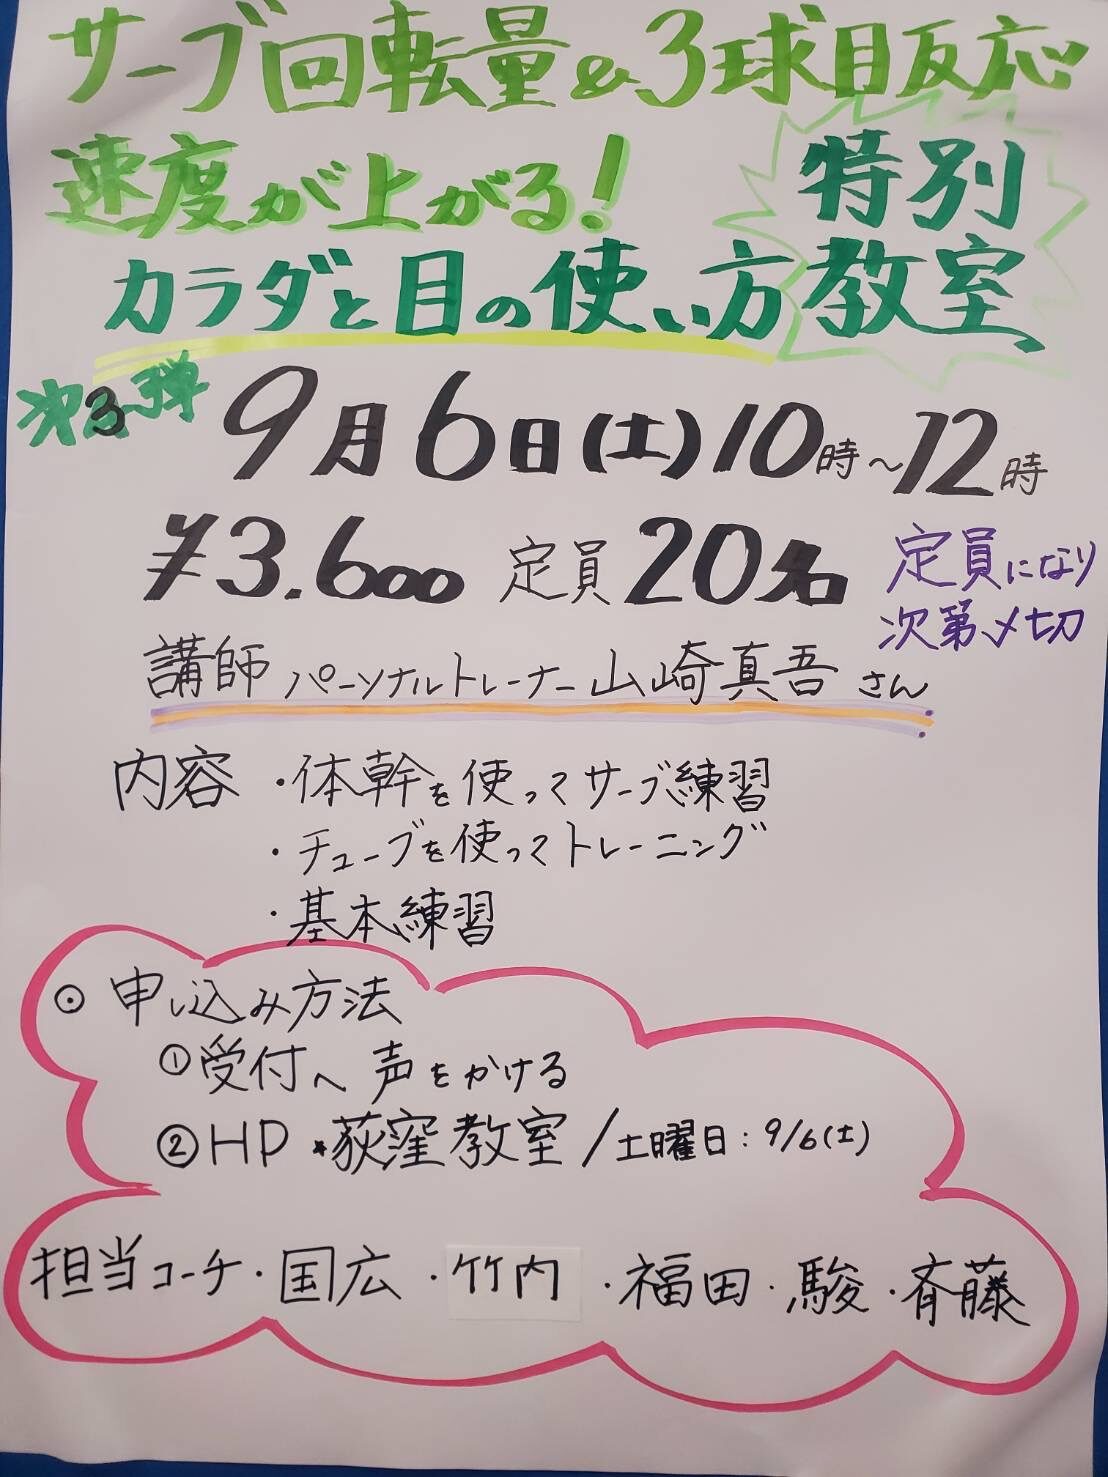 サーブ回転量&3球目反応
速度が上がる!
特別
カラダと目の使い方教室
第3弾
9月6日(土)10時~12時
¥3.600 定員20名
定員になり
次第〆切
講師 パーソナルトレーナー山崎真吾さん
内容 ・体幹を使ってサーブ練習
・チューブを使ってトレーニング
・基本練習
⊙申し込み方法
①受付へ声をかける
②HP *荻窪教室/土曜日:9/6(土)
担当コーチ・国広・竹内・福田・駿・斉藤